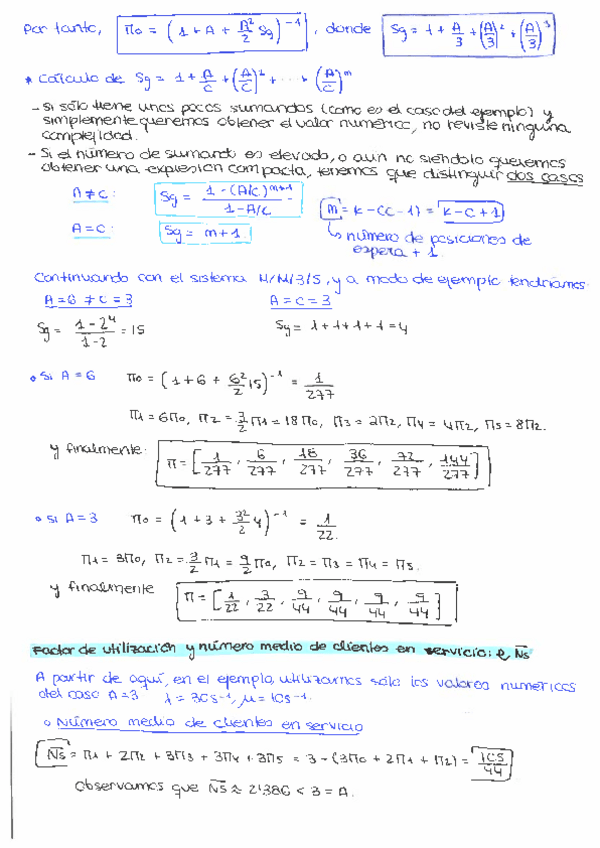 Por tanto, Π0 = (1 + A + A²/2 Sg)⁻¹, donde Sg = 1 + A/3 + (A/3)² + (A/3)³
* Cálculo de Sg = 1 + A/C + (A/C)² + ... + (A/C)^m
- Si sólo tiene unos pocos sumandos (como es el caso del ejemplo) y
simplemente queremos obtener el valor numérico, no reviste ninguna
complejidad.
- Si el número de sumando es elevado, o aun no siéndolo queremos
obtener una expresión compacta, tenemos que distinguir dos casos
A ≠ C: Sg = (1 - (A/C)^(m+1)) / (1 - A/C)
m = K - (C - 1) = K - C + 1
A = C: Sg = m + 1
↳ número de posiciones de
espera + 1.
Continuando con el sistema M/M/3/5, y a modo de ejemplo tendríamos:
A = 6 ≠ C = 3 A = C = 3
Sg = (1 - 2⁴)/(1 - 2) = 15 Sg = 1 + 1 + 1 + 1 = 4
• Si A = 6 Π0 = (1 + 6 + 6²/2 15)⁻¹ = 1/277
Π1 = 6Π0, Π2 = 3/2 Π1 = 18Π0, Π3 = 2Π2, Π4 = 4Π2, Π5 = 8Π2.
y finalmente: Π = [1/277, 6/277, 18/277, 36/277, 72/277, 144/277]
• Si A = 3 Π0 = (1 + 3 + 3²/2 4)⁻¹ = 1/22.
Π1 = 3Π0, Π2 = 3/2 Π1 = 9/2 Π0, Π2 = Π3 = Π4 = Π5.
y finalmente Π = [1/22, 3/22, 9/44, 9/44, 9/44, 9/44]
Factor de utilización y número medio de clientes en servicio: ρ N̄s
A partir de aquí, en el ejemplo, utilizamos sólo los valores numéricos
del caso A = 3 λ = 30s⁻¹, μ = 10s⁻¹.
o Número medio de clientes en servicio
N̄s = Π1 + 2Π2 + 3Π3 + 3Π4 + 3Π5 = 3 - (3Π0 + 2Π1 + Π2) = 105/44
Observamos que N̄s ≈ 2'386 < 3 = A.